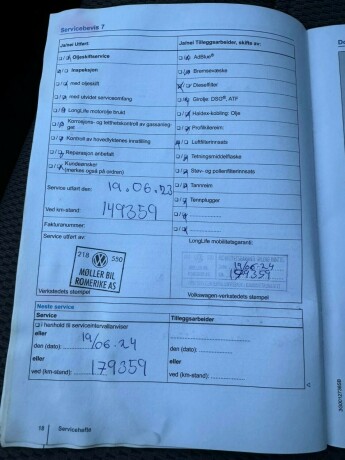 Servicebevis 7
Ja/nei Utført:
Ja/nei Tilleggsarbeider, skifte av:
Oljeskiftservice
AdBlue®
Inspeksjon
Bremsevæske
med oljeskift
Dieselfilter
med utvidet serviceomfang
Girolje: DSG®, ATF
LongLife motorolje brukt
Haldex-kobling: Olje
Korrosjons- og tetthetskontroll av gassanlegget
Partikkelfilter
Kontroll av hovedlyktenes innstilling
Luftfilterinnsats
Reparasjon anbefalt
Tetningsmiddelflaske
Kundeønsker
(merkes også på ordren)
Støv- og pollenfilterinnsats
Tannreim
Tennplugger
Service utført den: 19.06.23
Ved km-stand: 149359
Fakturanummer:
Service utført av:
LongLife mobilitetsgaranti:
218 550
MØLLER BIL
ROMERIKE AS
19/06.24
179359
Verkstedets stempel
Volkswagen-verkstedets stempel
Neste service
Service
Tilleggsarbeider
I henhold til serviceintervallanviser
eller
eller
den (dato): 19/06.24
den (dato):
eller
eller
ved (km-stand): 179359
ved (km-stand):
Servicehefte